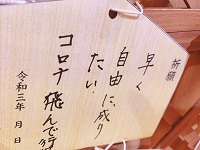 祈願
早く
自由に成り
たい
コロナ 飛んで行け
令和三年 月 日